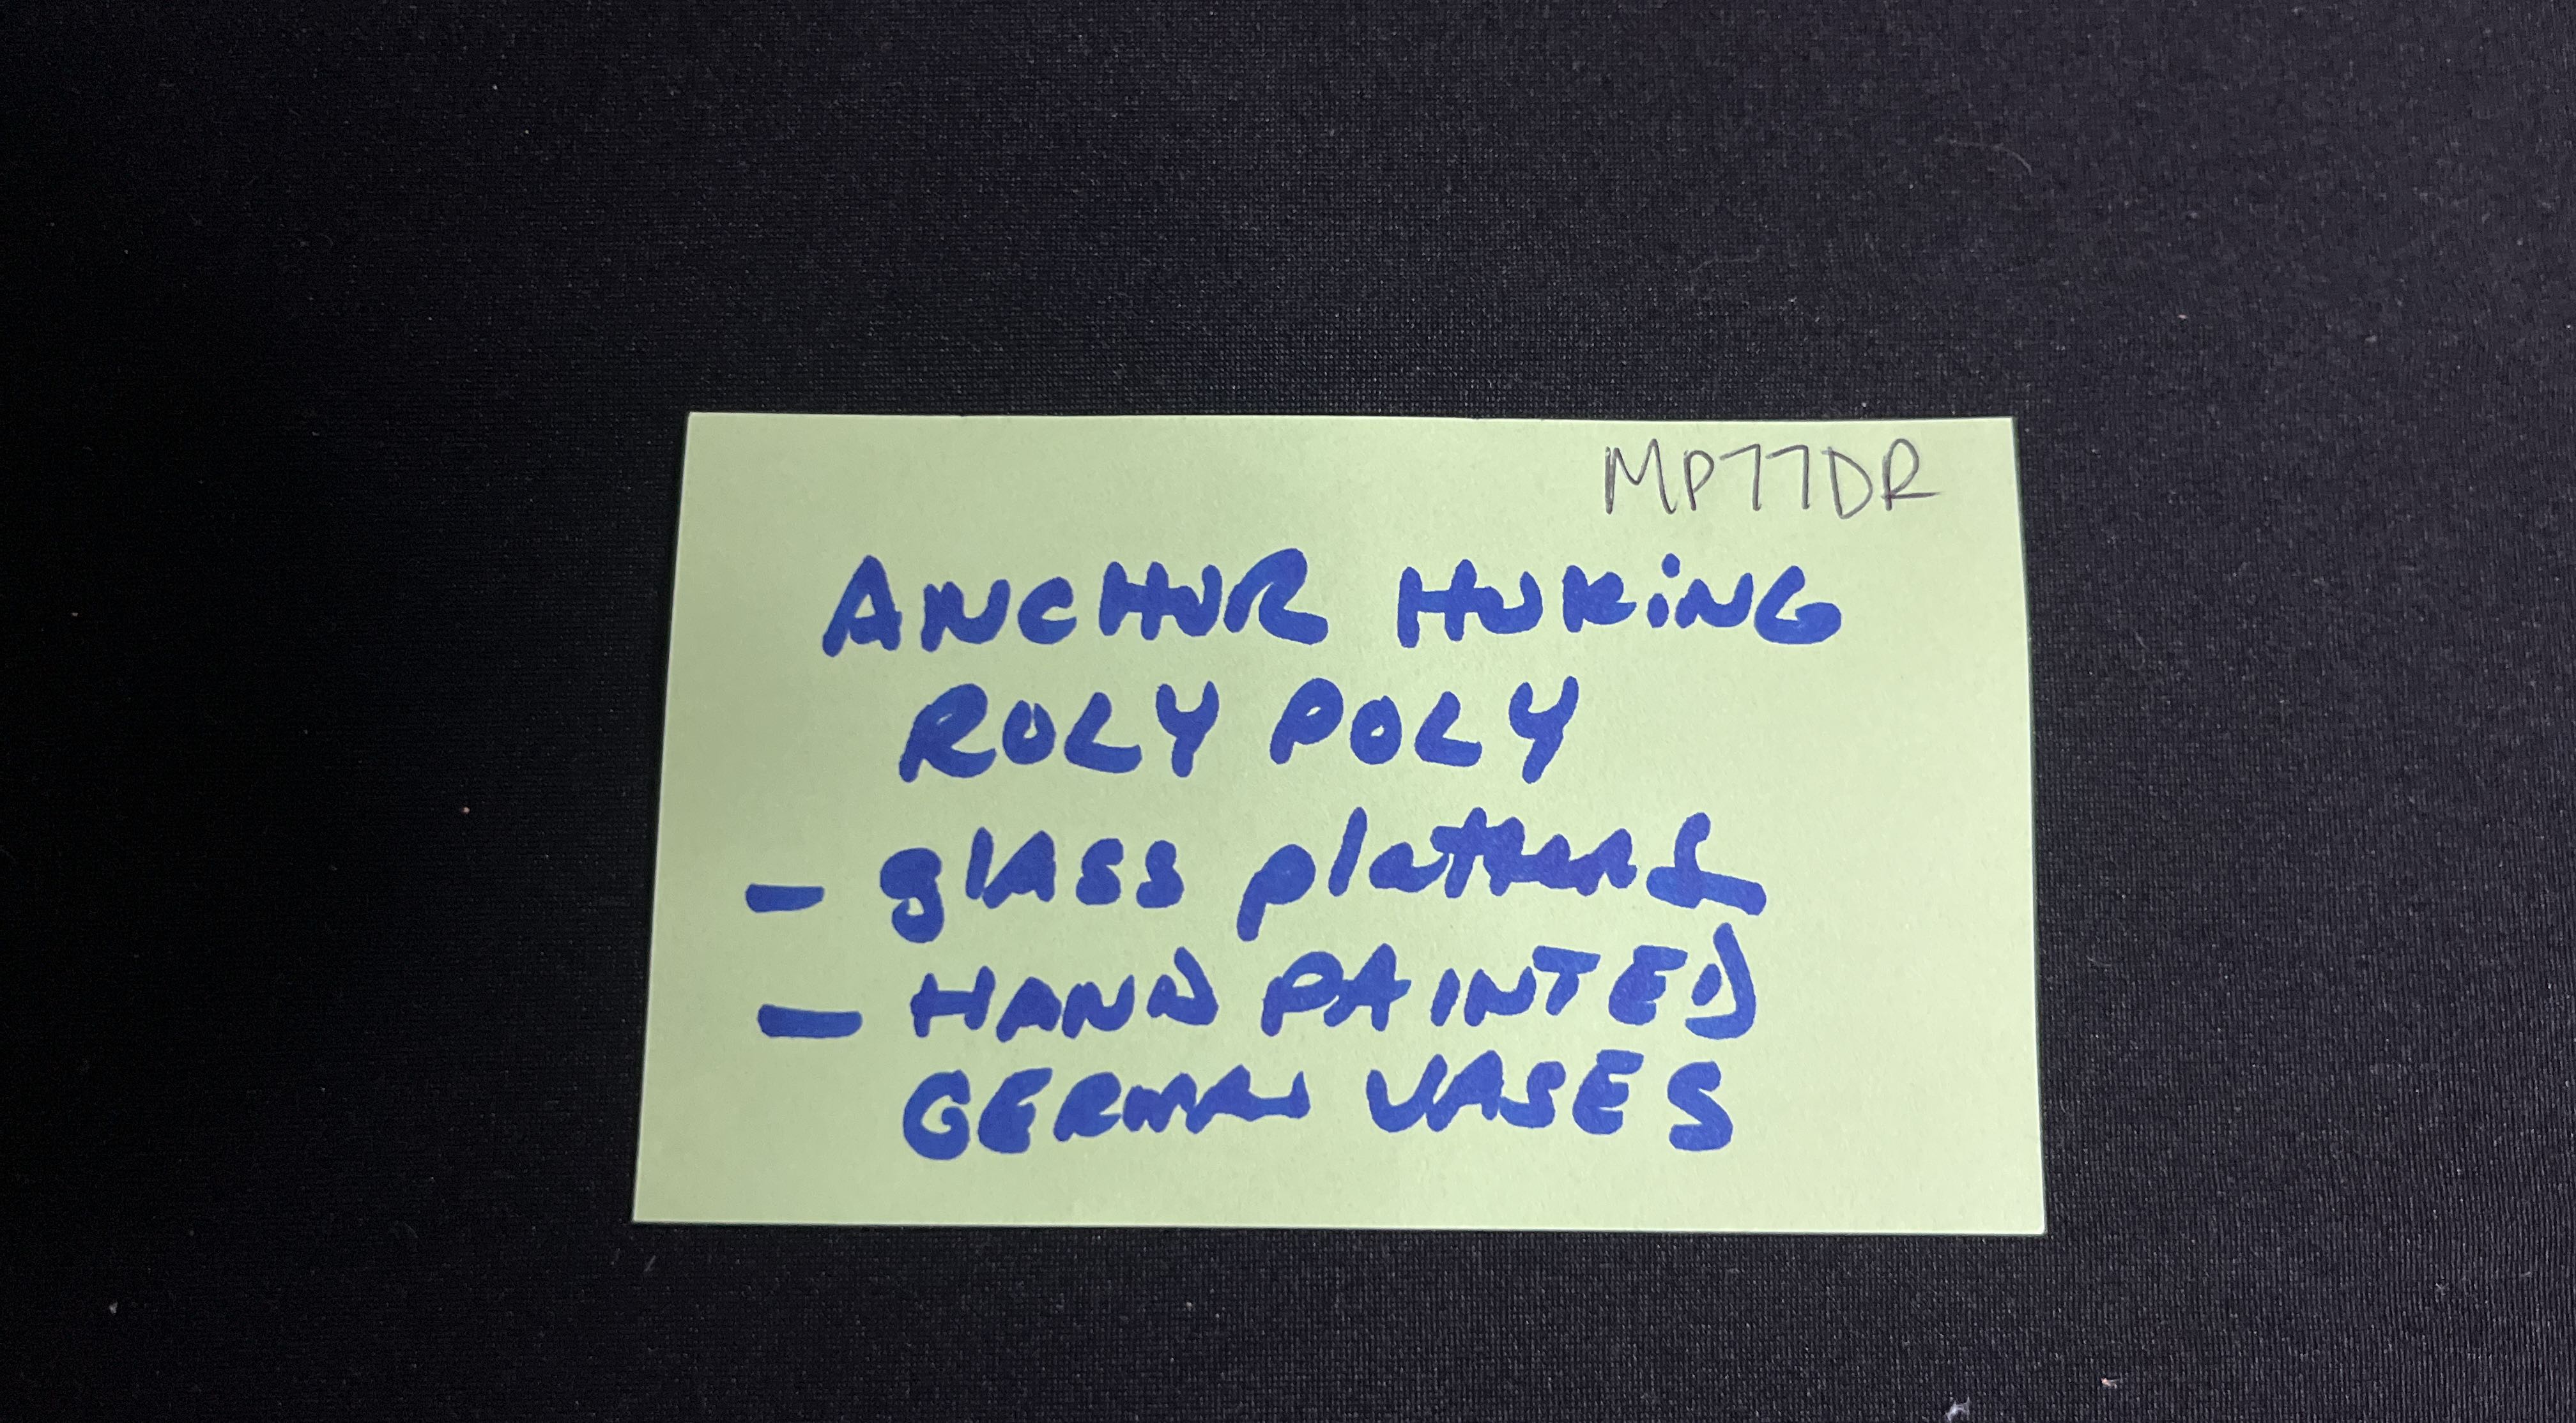 MP77DR
ANCHOR HOKiNG
ROLY POLY
- glASS platters
- HAND PAINTED
GERMAN VASES